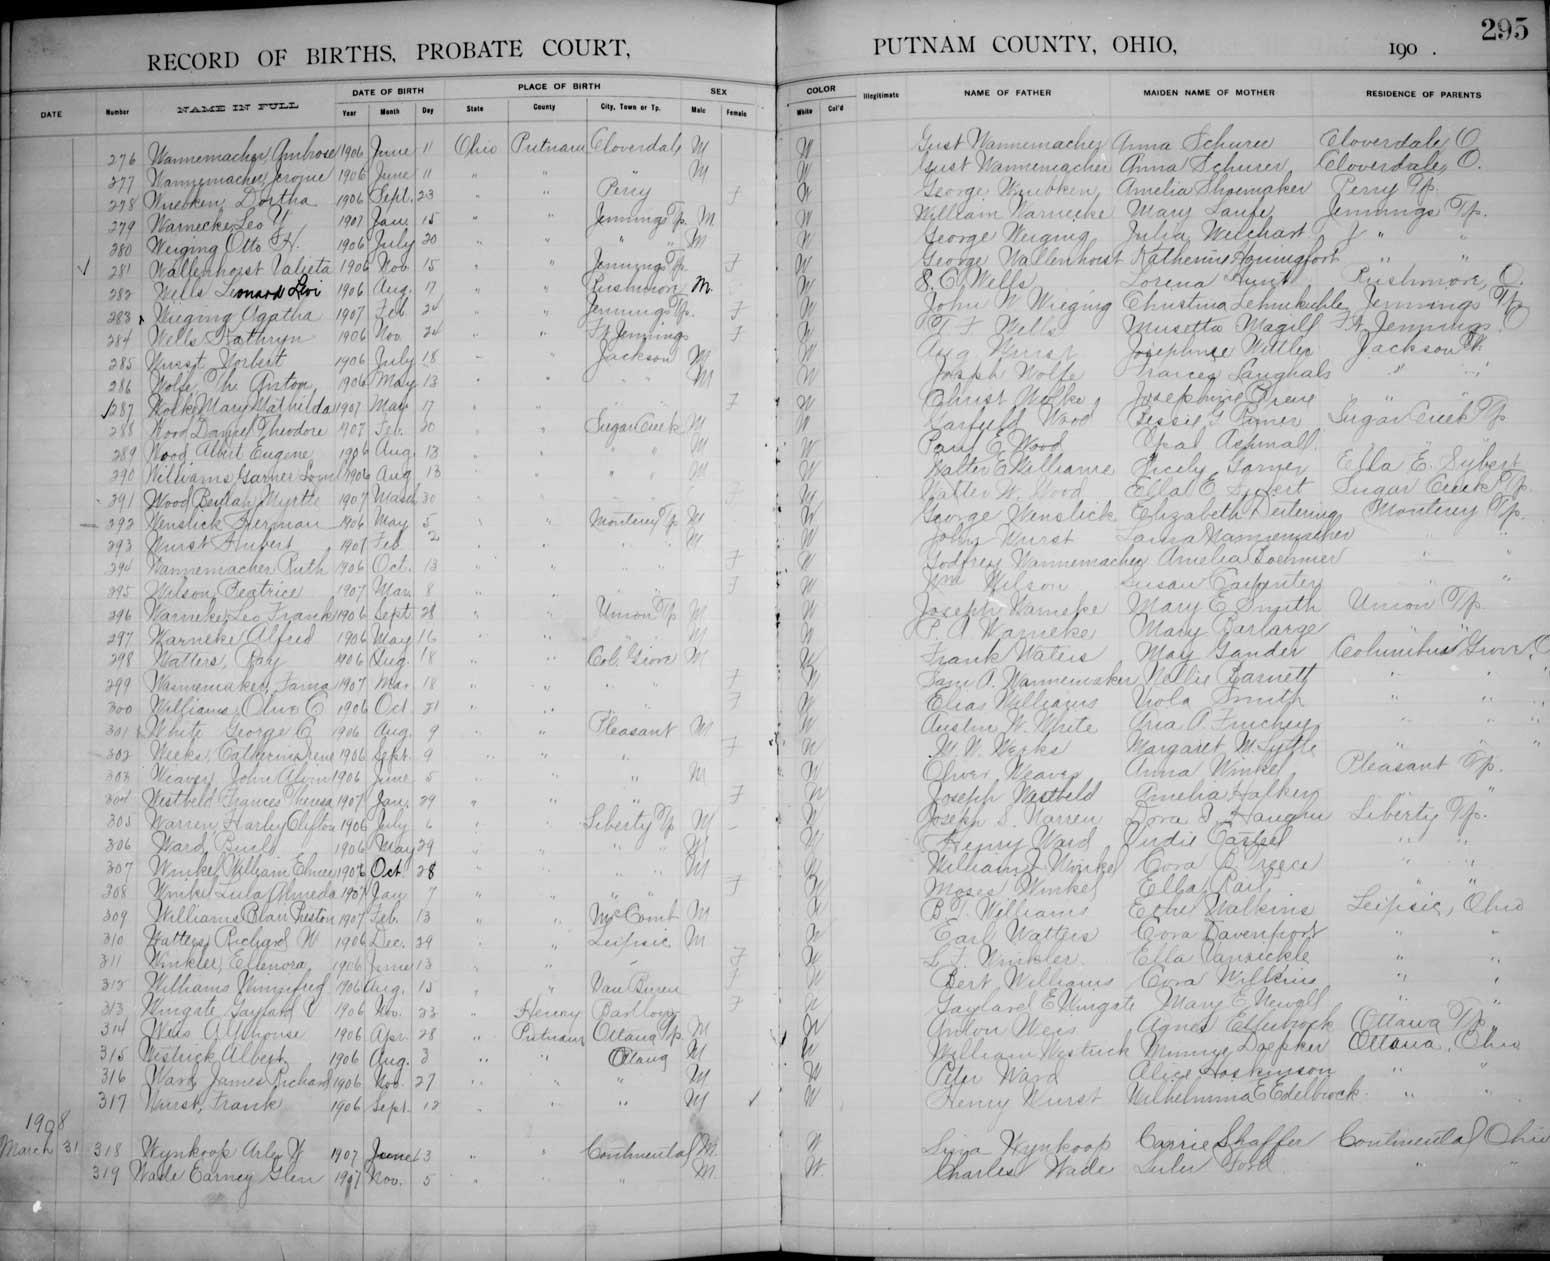 295
RECORD OF BIRTHS, PROBATE COURT, PUTNAM COUNTY, OHIO, 190 .
DATE OF BIRTH PLACE OF BIRTH SEX COLOR
DATE Number NAME IN FULL Year Month Day State County City, Town or Tp. Male Female White Col'd Illegitimate NAME OF FATHER MAIDEN NAME OF MOTHER RESIDENCE OF PARENTS
276 Wannemacher, Ambrose 1906 June 11 Ohio Putnam Cloverdale M W Gust Wannemacher Anna Schurer Cloverdale, O
277 Wannemacher, Jerome 1906 June 11 " " " M W Gust Wannemacher Anna Schurer Cloverdale, O.
278 Dortha 1906 Sept. 23 " " Perry F W George Amelia Shoemaker Perry Tp.
279 Warnecke, Leo 1907 Jan. 15 " " Jennings Tp. M W William Warnecke Mary Jennings Tp.
280 Weiging Otto H. 1906 July 20 " " " " M W George Weiging Julia Weichart " "
281 Wallenhorst Valieta 1906 Nov. 15 " " Jennings Tp. F W George Wallenhorst Katherine " "
282 Wells Leonard Levi 1906 Aug. 17 " " Rushmore M. W S. C. Wells Lorena Hunt Rushmore, O.
283 Wieging Agatha 1907 Feb. 24 " " Jennings Tp. F W John W Wieging Christina Jennings Tp
284 Wells Kathryn 1906 Nov. 24 " " Ft Jennings F W T. F. Wells Musetta Magill Ft. Jennings, O
285 Wurst Norbert 1906 July 18 " " Jackson M W Aug Wurst Josephine Wittler Jackson Tp.
286 Wolfe, Anton 1906 May 13 " " " " M W Joseph Wolfe Frances Langhals " "
287 Mary Mathilda 1907 Mar. 17 " " " " F W Christ Josephine " "
288 Wood Daniel Theodore 1907 Feb. 20 " " Sugar Creek M W Garfield Wood Bessie G. Sugar Creek Tp
289 Wood Albert Eugene 1906 Aug. 13 " " " " M W Paul E. Wood Opal Aspinall " "
290 Williams, Garner 1906 Aug 13 " " " " M W Walter E Williams Cicily Garner Ella E. Sybert
291 Wood Beulah Myrtle 1907 March 30 " " " " F W Walter W. Wood Ella E Sugar Creek Tp.
292 Wenslick Herman 1906 May 5 " " Monterey Tp M W George Wenslick Elizabeth Deitering Monterey Tp.
293 Wurst Hubert 1907 Feb. 2 " " " " M W John Wurst Wannemacher " "
294 Wannemacher Ruth 1906 Oct. 13 " " " " F W Godfrey Wannemacher Amelia Boehmer " "
295 Wilson, Beatrice 1907 Mar. 8 " " " " F W Wm Wilson Susan Carpenter " "
296 Warneke, Leo Frank 1906 Sept. 28 " " Union Tp M W Joseph Warneke Mary E Smith Union Tp.
297 Warneke Alfred 1906 May 16 " " " " M W P. A Warneke Mary " "
298 Watters, Ray 1906 Aug. 18 " " Col. Grove M W Frank Waters May Gander Columbus Grove, O
299 Wannemaker, 1907 Mar. 18 " " " " F W A. Wannemaker Nellie Barnett " "
300 Williams, Olive C 1906 Oct. 21 " " " " F W Elias Williams Viola Smith " "
301 White George C 1906 Aug. 9 " " Pleasant M W Austin W. White " "
302 Weeks, Catherine 1906 Sept. 9 " " " F W Weeks Margaret M. Lytle " "
303 Weaver, John Alvin 1906 June 5 " " " M W Oliver Weaver Anna Winkel Pleasant Tp.
304 Westbeld Frances Theresa 1907 Jan. 29 " " " F W Joseph Westbeld Amelia " "
305 Warren, Harley Clifton 1906 July 6 " " Liberty Tp M W Joseph S. Warren Dora Liberty Tp.
306 Ward, 1906 May 29 " " " " M W Henry Ward " "
307 Winkel William Elmer 1906 Oct. 28 " " " " M W William J. Winkel Cora " "
308 Lula Almeda 1907 Jan 7 " " " " F W Moses Winkel Ella " "
309 Williams Preston 1907 Feb. 13 " " McComb M W B. T. Williams Ethel Walkins Leipsic, Ohio
310 Watters, Richard W 1906 Dec. 29 " " Leipsic M W Earl Watters Cora Davenport " "
311 Winkler, Ellenora 1906 June 13 " " " F W L. F. Winkler Ella Vansickle " "
312 Williams Winnifred 1906 Aug. 15 " " Van Buren F W Bert Williams Cora Wilkins " "
313 Wingate Gaylard V 1906 Nov. 23 " Henry Bartlow F W Gaylard E Wingate Mary E. Newell " "
314 Weis Alphonse 1906 Apr. 28 " Putnam Ottawa Tp. M W Anton Weis Agnes Ellerbrock Ottawa Tp.
315 Wistrick Albert 1906 Aug. 3 " " Ottawa M W William Wistrick Minnie Doepker Ottawa, Ohio
316 Ward, James Richard 1906 Nov. 27 " " " M W Peter Ward Alice Hoskinson " "
317 Wurst, Frank 1906 Sept. 12 " " " M W Henry Wurst Wilhelmina E Edelbrock " "
1908
March 31 318 Wynkoop Arley W 1907 June 13 " " Continental M. W Wynkoop Carrie Shaffer Continental, Ohio
319 Wade Earney Glen 1907 Nov. 5 " " " M. W. Charles Wade Lulu Ford " "